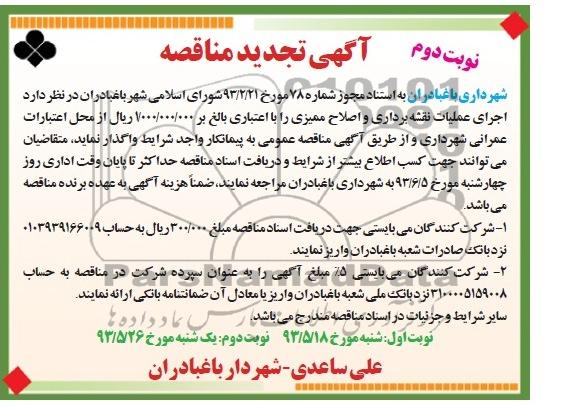 نوبت دوم
آگهی تجدید مناقصه
شهرداری باغبادران به استناد مجوز شماره ۷۸ مورخ ۹۳/۲/۲۱ شورای اسلامی شهر باغبادران در نظر دارد
اجرای عملیات نقشه برداری و اصلاح ممیزی را با اعتباری بالغ بر ۱/۰۰۰/۰۰۰/۰۰۰ ریال از محل اعتبارات
عمرانی شهرداری و از طریق آگهی مناقصه عمومی به پیمانکار واجد شرایط واگذار نماید، متقاضیان
می توانند جهت کسب اطلاع بیشتر از شرایط و دریافت اسناد مناقصه حداکثر تا پایان وقت اداری روز
چهارشنبه مورخ ۹۳/۶/۵ به شهرداری باغبادران مراجعه نمایند، ضمناً هزینه آگهی به عهده برنده مناقصه
می باشد.
۱- شرکت کنندگان می بایستی جهت دریافت اسناد مناقصه مبلغ ۳۰۰/۰۰۰ ریال به حساب ۰۱۰۳۹۳۹۱۶۶۰۰۹
نزد بانک صادرات شعبه باغبادران واریز نمایند.
۲- شرکت کنندگان می بایستی ۵٪ مبلغ آگهی را به عنوان سپرده شرکت در مناقصه به حساب
۳۱۰۰۰۰۵۱۵۹۰۰۸ نزد بانک ملی شعبه باغبادران واریز یا معادل آن ضمانتنامه بانکی ارائه نمایند.
سایر شرایط و جزئیات در اسناد مناقصه مندرج می باشد.
نوبت اول: شنبه مورخ ۹۳/۵/۱۸ نوبت دوم: یک شنبه مورخ ۹۳/۵/۲۶
علی ساعدی-شهردار باغبادران
ParsNamadData